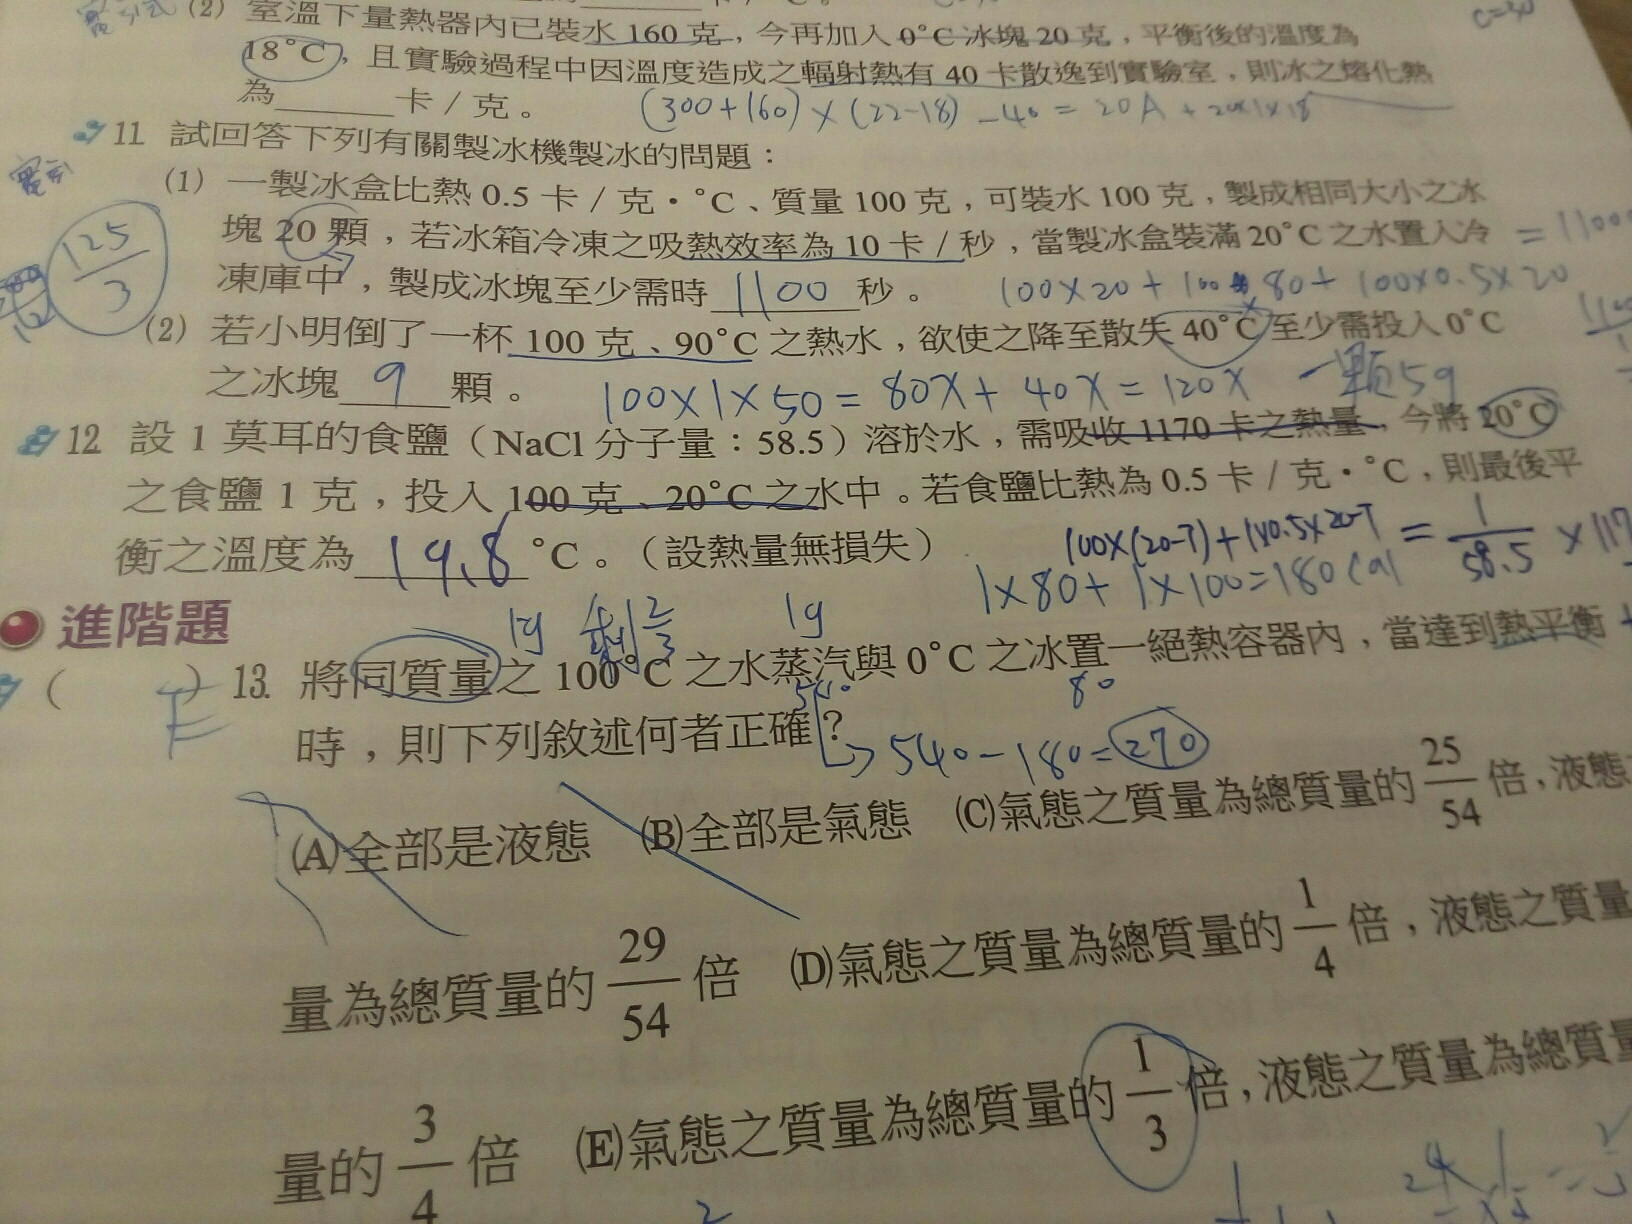 (2) 室溫下量熱器內已裝水 160 克，今再加入 0°C 冰塊 20 克，平衡後的溫度為
18°C，且實驗過程中因溫度造成之輻射熱有 40 卡散逸到實驗室，則冰之熔化熱
為______卡 / 克。 (300+160)×(22-18)-40=20A+20×1×18
11 試回答下列有關製冰機製冰的問題：
(1) 一製冰盒比熱 0.5 卡 / 克·°C、質量 100 克，可裝水 100 克，製成相同大小之冰
塊 20 顆，若冰箱冷凍之吸熱效率為 10 卡 / 秒，當製冰盒裝滿 20°C 之水置入冷
凍庫中，製成冰塊至少需時 1100 秒。 100×20+100×80+100×0.5×20
125/3
(2) 若小明倒了一杯 100 克、90°C 之熱水，欲使之降至散失 40°C 至少需投入 0°C
之冰塊 9 顆。 100×1×50=80X+40X=120X 一顆5g
12 設 1 莫耳的食鹽（NaCl 分子量：58.5）溶於水，需吸收 1170 卡之熱量，今將 20°C
之食鹽 1 克，投入 100 克、20°C 之水中。若食鹽比熱為 0.5 卡 / 克·°C，則最後平
衡之溫度為 19.8 °C。（設熱量無損失）
1×80+1×100=180cal
進階題
1g 剩2/3 1g
( E ) 13. 將同質量之 100°C 之水蒸汽與 0°C 之冰置一絕熱容器內，當達到熱平衡
540 80
時，則下列敘述何者正確？
540-180=270
(A)全部是液態 (B)全部是氣態 (C)氣態之質量為總質量的 25/54 倍，液態
量為總質量的 29/54 倍 (D)氣態之質量為總質量的 1/4 倍，液態之質量
量的 3/4 倍 (E)氣態之質量為總質量的 1/3 倍，液態之質量為總質量